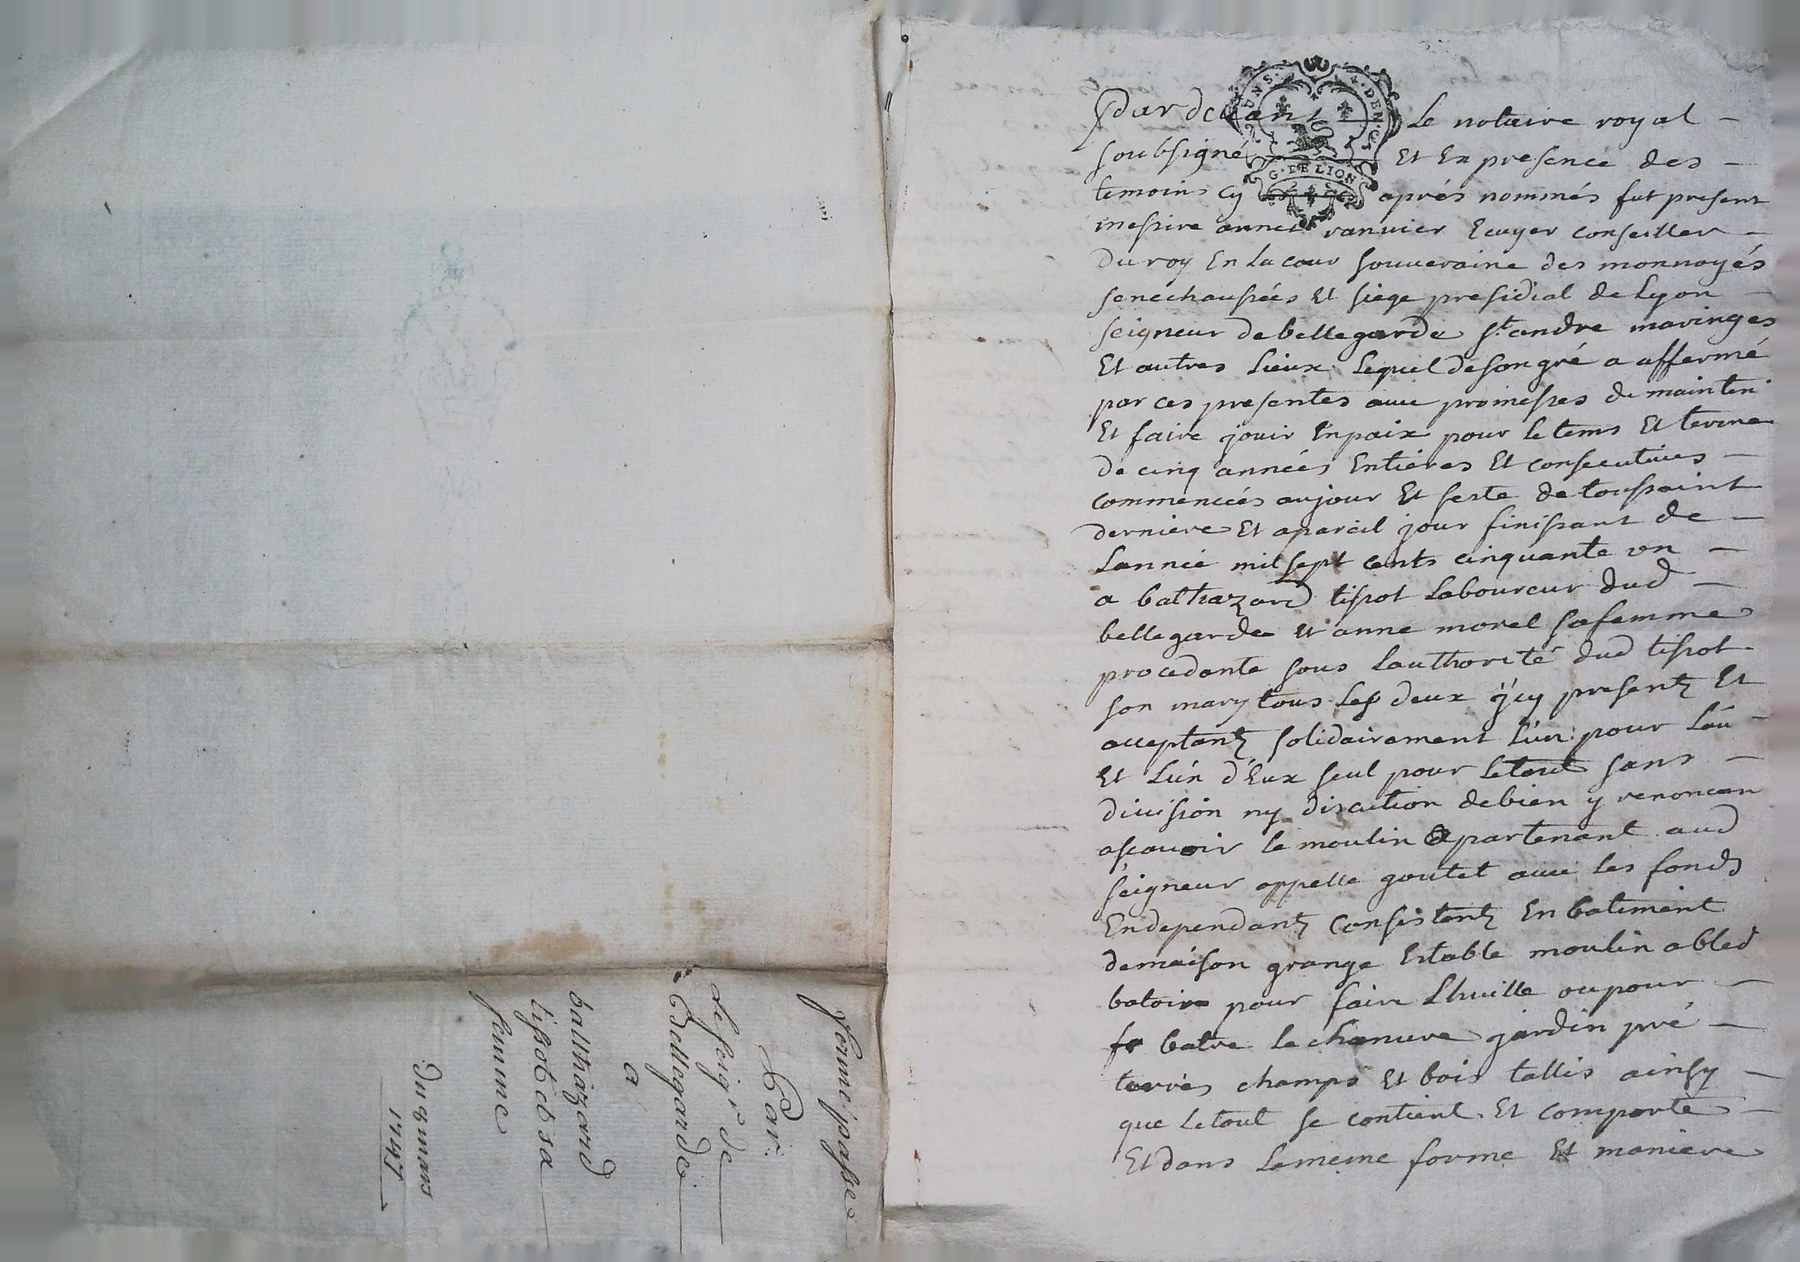 Pardevant le notaire royal
soubsigné et en presence des
temoins cy après nommés fut present
messire annet ranvier Ecuyer conseiller
du roy En la cour souveraine des monnoyés
senechaussées et siege presidial de Lyon
seigneur de bellegarde st andre maringes
Et autres Lieux Lequel de son gré a affermé
par ces presentes avec promesses de mainteni
Et faire jouir En paix pour le tems Et terme
de cinq années Entieres Et consecutives
commencées au jour Et feste de toussaint
derniere Et a pareil jour finissant de
Lannée mil sept cents cinquante un
a balthazard tissot Laboureur dud
bellegarde et anne morel sa femme
procedante sous Lauthorité dud tissot
son mary tous les deux ÿcy presentz Et
acceptantz solidairement Lun pour Lau
Et Lún d'Eux seul pour le tout sans
division ny discution de bien y renoncan
ascavoir le moulin apartenant aud
seigneur appelle goutet avec les fonds
En dependantz consistantz En batiment
de maison grange Estable moulin a bled
batoire pour faire Lhuille ou pour
batre le chanvre jardin pré
terres champs Et bois tallis ainsy
que le tout se contient Et comporte
Et dans la meme forme Et maniere
G. DE LION
ferme passée
Par
Le seigr de
Bellegarde
a
balthazard
tissot et sa
femme
Du 2 mars
1747